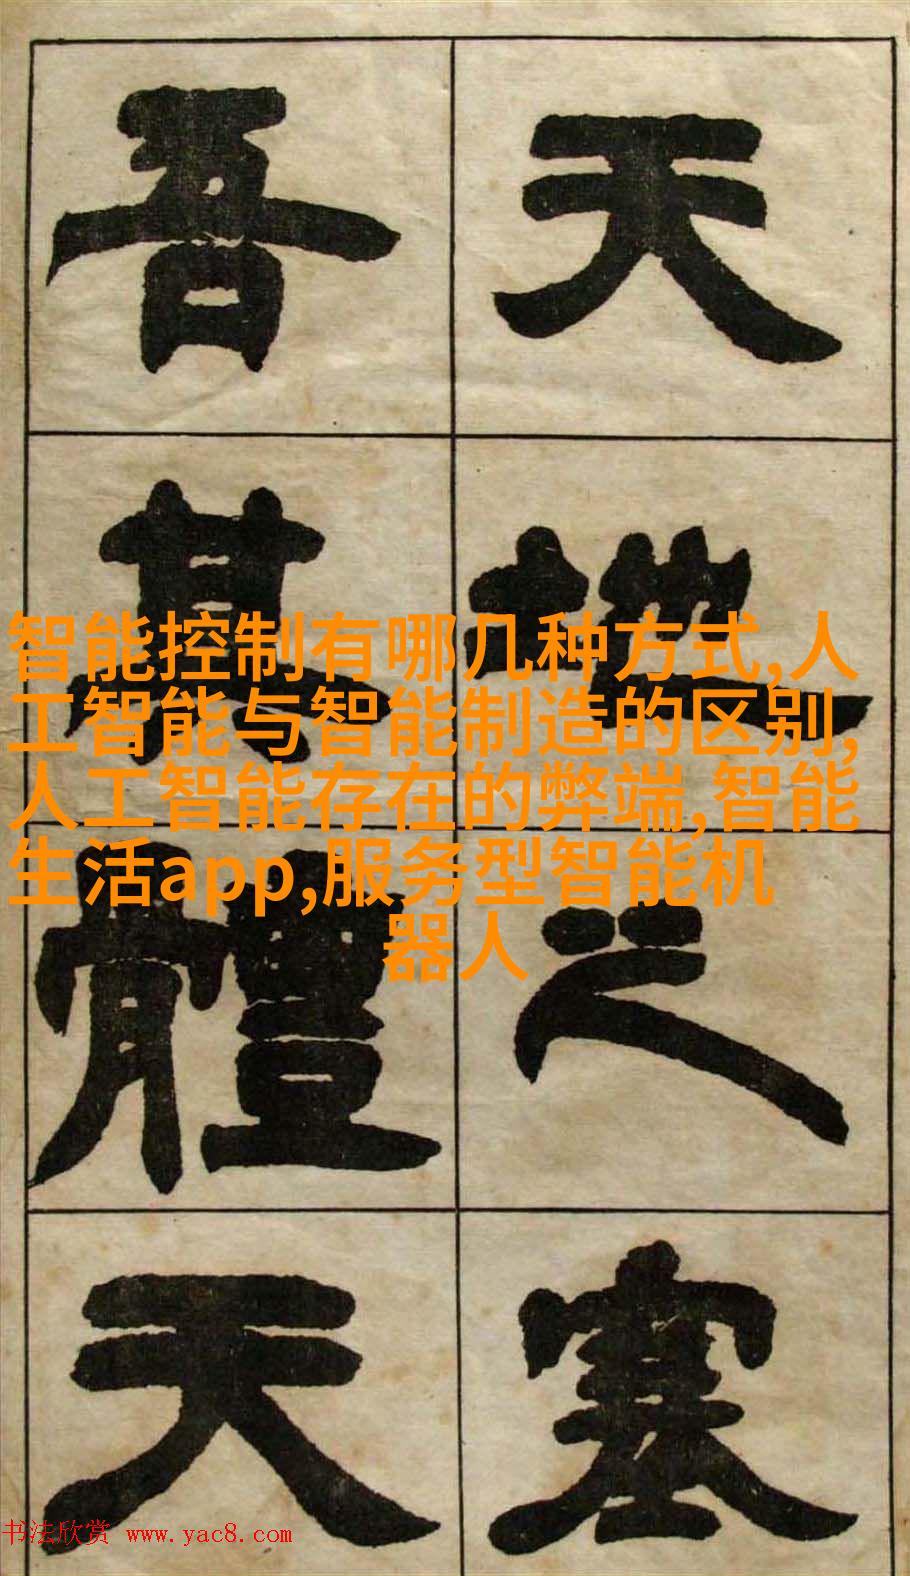 天地之塞
吾其體天
智能控制有哪几种方式,人
工智能与智能制造的区别,
人工智能存在的弊端,智能
生活app,服务型智能机
器人
书法欣赏 www.yac8.com